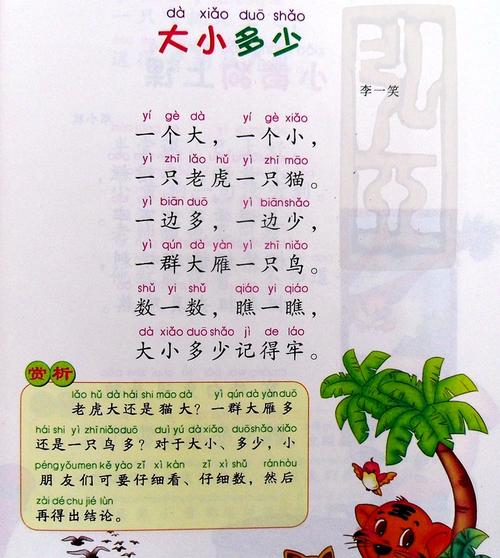 dà xiǎo duō shǎo
大小多少
李一笑
yí gè dà yí gè xiǎo
一个大，一个小，
yì zhī lǎo hǔ yì zhī māo
一只老虎一只猫。
yì biān duō yì biān shǎo
一边多，一边少，
yì qún dà yàn yì zhī niǎo
一群大雁一只鸟。
shǔ yi shǔ qiáo yi qiáo
数一数，瞧一瞧，
dà xiǎo duō shǎo jì de láo
大小多少记得牢。
赏析
lǎo hǔ dà hái shi māo dà yì qún dà yàn duō
老虎大还是猫大？一群大雁多
hái shi yì zhī niǎo duō duì yú dà xiǎo duō shǎo xiǎo
还是一只鸟多？对于大小、多少，小
péng yǒu men kě yào zǐ xì kàn zǐ xì shǔ rán hòu
朋友们可要仔细看、仔细数，然后
zài dé chū jié lùn
再得出结论。